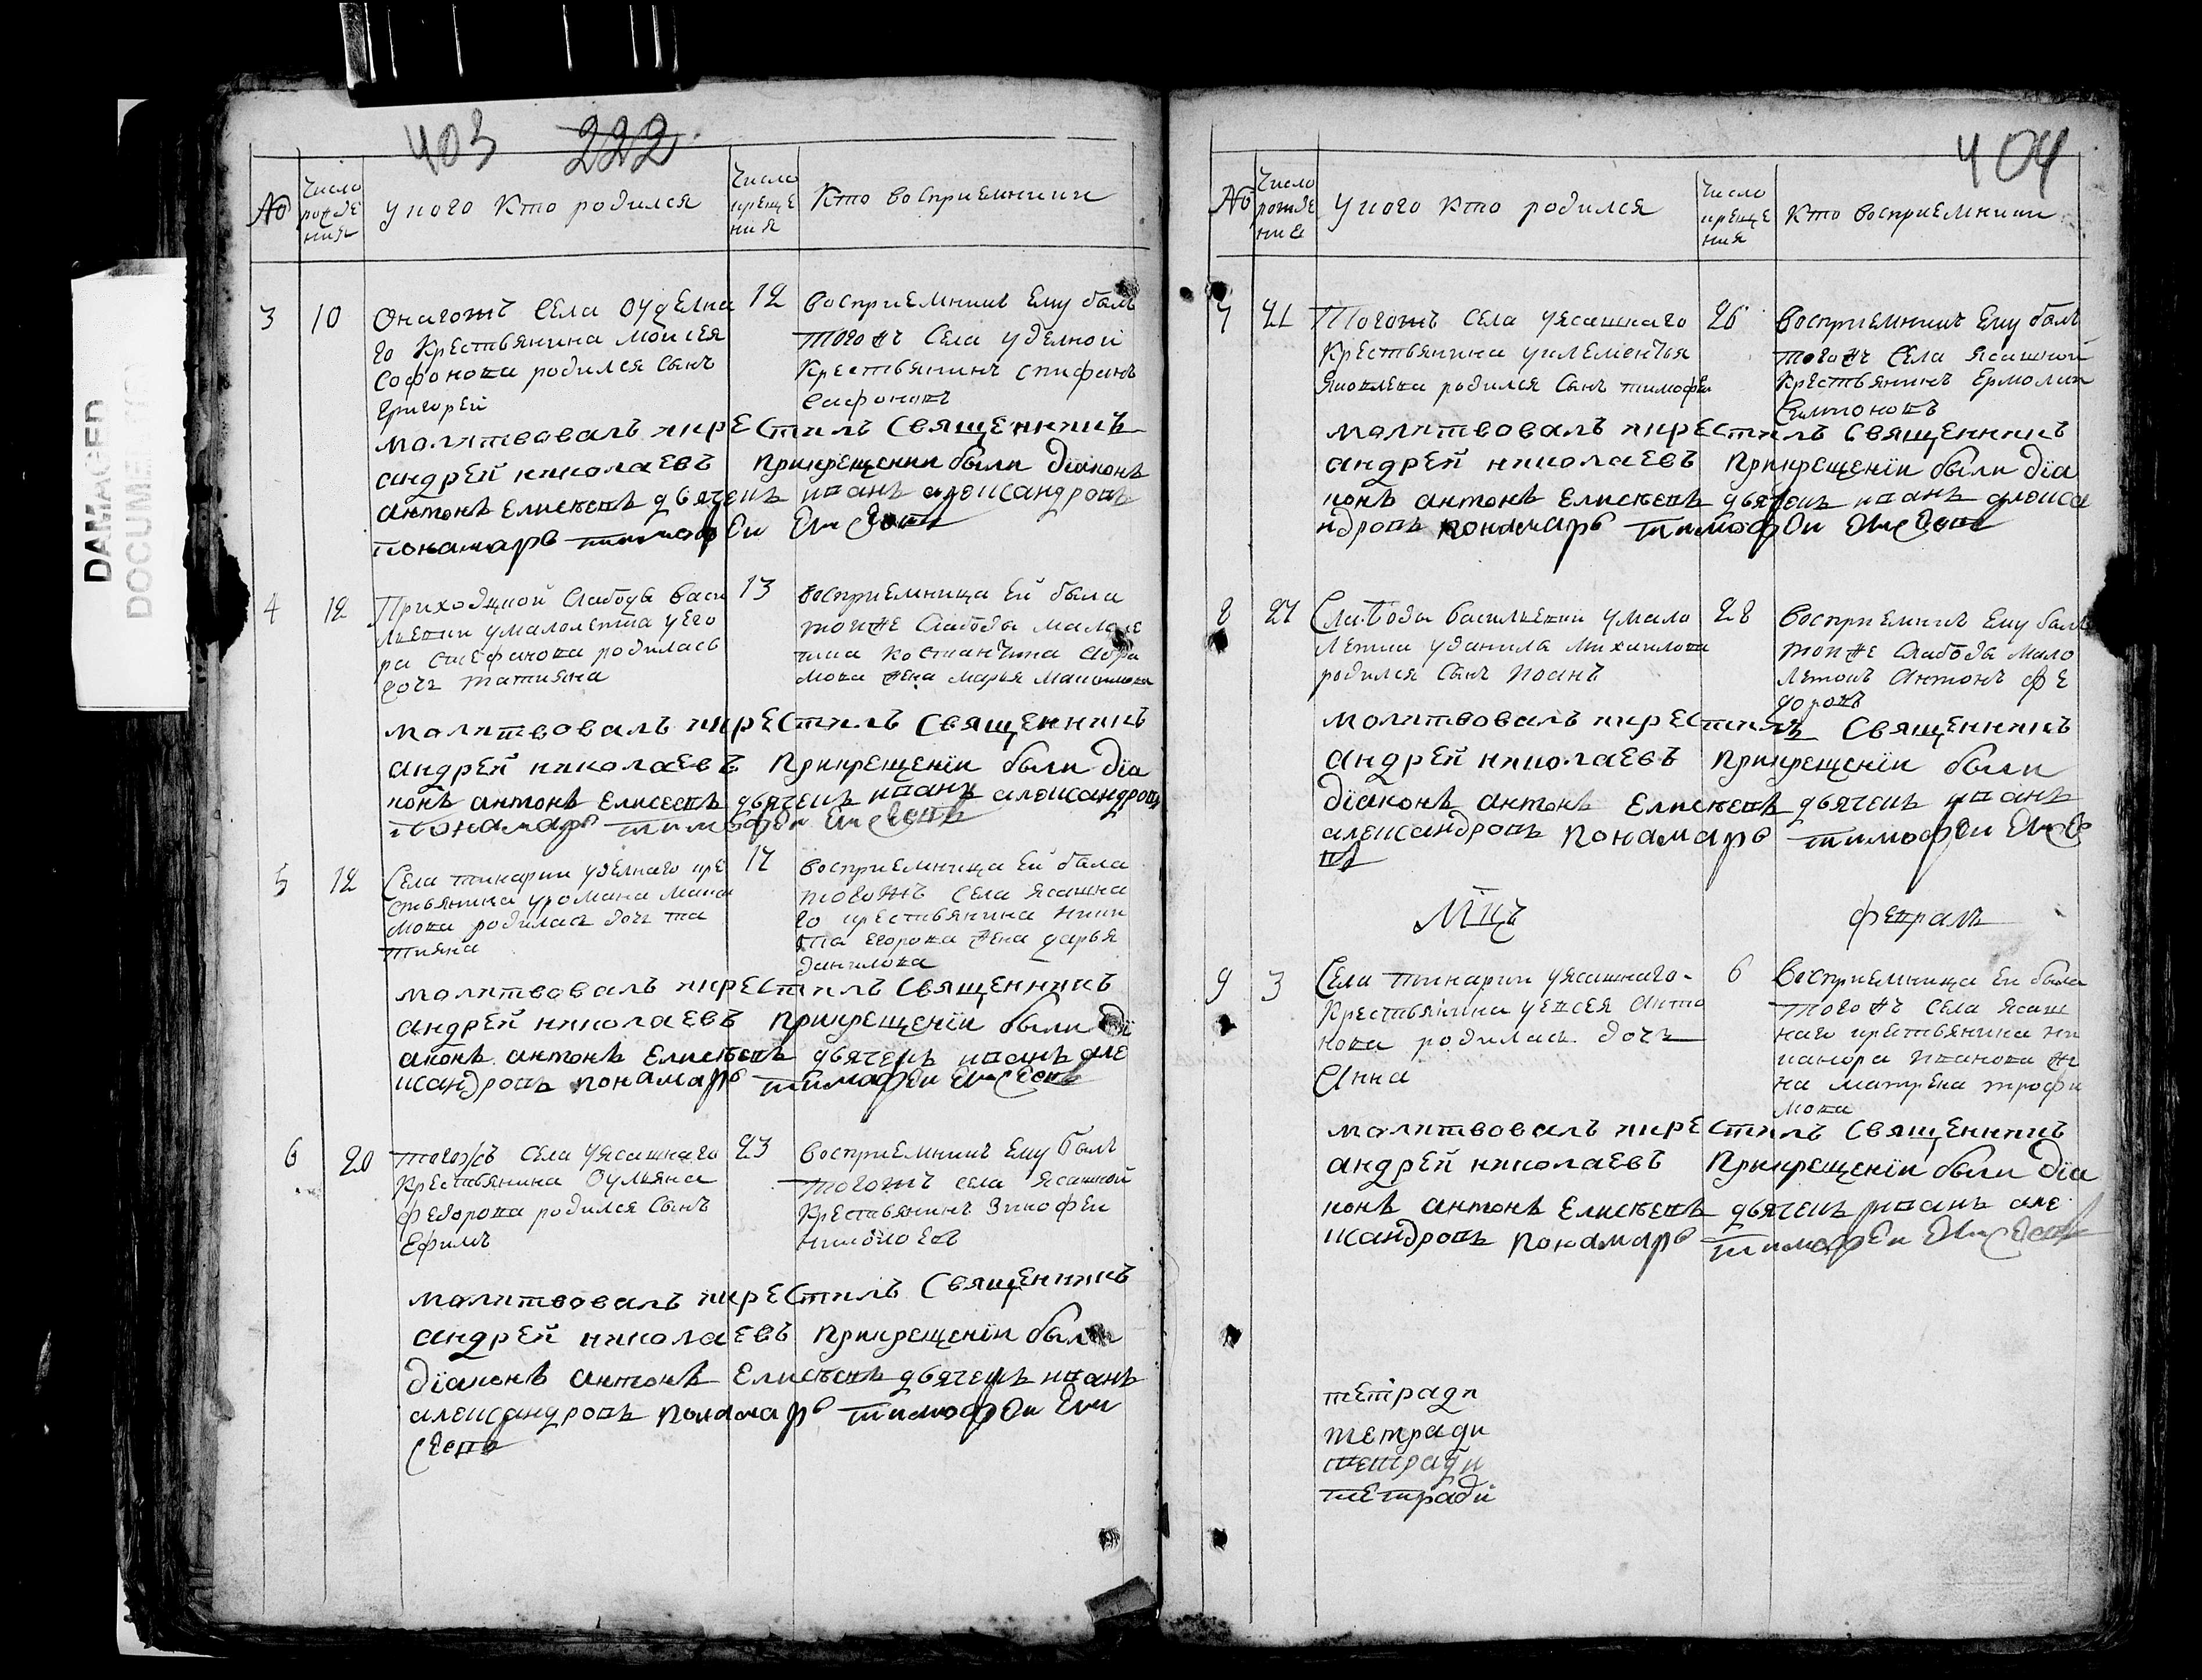 403 222
№
Число рожде ния
у кого кто родился
Число креще ния
Кто восприемники
3 10
Онагожъ Села Оуделна
го Крестьянина Моисея
Софонова родился Сынъ
Григорей
12
восприемникъ Ему былъ
тогожъ Села уделной
Крестьянинъ стифанъ
Сафоновъ
молитвовалъ икрестилъ Священникъ
андрей николаевъ прикрещении были дiаконъ
антонъ Елисеевъ дьячекъ иванъ александровъ
понамарь тимофеи Елисеевъ
4 12
Приходцкой Слабоды Васи
льевки умалолетка уего
ра Стефанова родилась
дочь татияна
13
восприемница Ей была
тойже Слабоды малоле
тка Костянтина Абра
мова жена марья Максимова
молитвовалъ икрестилъ Священникъ
андрей николаевъ прикрещенiи были дiа
конъ антонъ Елисеевъ дьячекъ иванъ александровъ
понамарь тимофеи Елисеевъ
5 12
Села тинарки уделнаго кре
стьянина уромана Макси
мова родилась дочь та
тияна
17
восприемница Ей была
тогожъ Села Ясашна
го крестьянина Ники
та егорова жена дарья
данилова
молитвовалъ икрестилъ Священникъ
андрей николаевъ прикрещенiи были дi
аконъ антонъ Елисеевъ дьячекъ иванъ але
ксандровъ понамарь тимофеи Елисеевъ
6 20
тогожъ Села уясашнаго
Крестьянина Оульяна
Федорова родился Сынъ
Ефимъ
23
восприемникъ Ему былъ
тогожъ села Ясашной
Крестьянинъ Зинофеи
молитвовалъ икрестилъ Священникъ
андрей николаевъ прикрещенiи были
дiаконъ антонъ Елисеевъ дьячекъ иванъ
александровъ понамарь тимофеи Ели
сеевъ
404
№
Число рожде ния
у кого кто родился
Число креще ния
Кто восприемники
7 21
Тогожъ Села уясашнаго
Крестьянина уклементья
Яковлева родился Сынъ тимофеи
26
восприемникъ Ему былъ
тогожъ Села Ясашной
Крестьянинъ Ермолаи
Семионовъ
молитвовалъ икрестилъ Священникъ
андрей николаевъ прикрещенiи были дiа
конъ антонъ Елисеевъ дьячекъ иванъ алекса
ндровъ понамарь тимофеи Елисеевъ
8 27
Слабоды Васильевки умало
летка уданила Михаилова
родился Сынъ Иоанъ
28
восприемникъ Ему былъ
тойже Слабоды мало
летокъ Антонъ Фе
доровъ
молитвовалъ икрестилъ Священникъ
андрей николаевъ прикрещенiи были
дiаконъ антонъ Елисеевъ дьячекъ иванъ
александровъ понамарь тимофеи Елисее
въ
Мцъ Февраль
9 3
Села тинарки уясашнаго
Крестьянина уевсея Анто
нова родилась дочь
Анна
6
восприемница Еи была
тогожъ Села Ясаш
наго крестьянина Ни
канора Иванова же
на матрена трофи
мова
молитвовалъ икрестилъ Священникъ
андрей николаевъ прикрещенiи были дiа
конъ антонъ Елисеевъ дьячекъ иванъ але
ксандровъ понамарь тимофеи Елисеевъ
тетради
тетради
тетради
тетрадi
DAMAGED
DOCUMENT